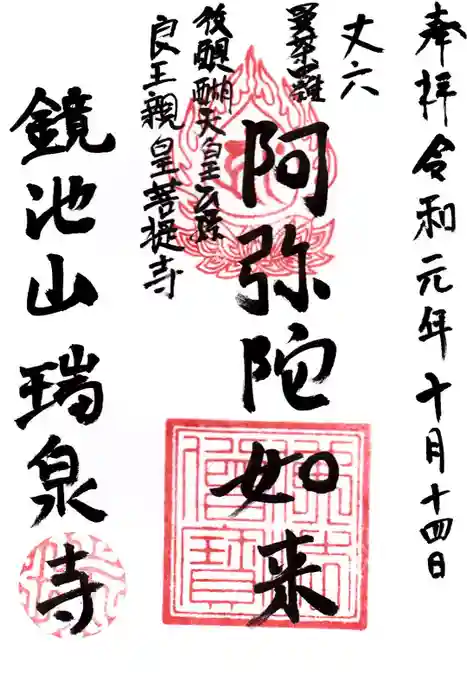 奉拝 令和元年十月十四日
丈六
曼荼羅
阿弥陀如来
後醍醐天皇玄孫
良王親皇菩提寺
鏡池山 瑞泉寺
佛法僧寶